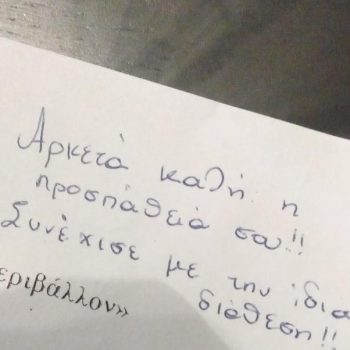 Αρκετά καλή η
προσπάθειά σου!!
Συνέχισε με την ίδια
διάθεση!!
εριβάλλον»